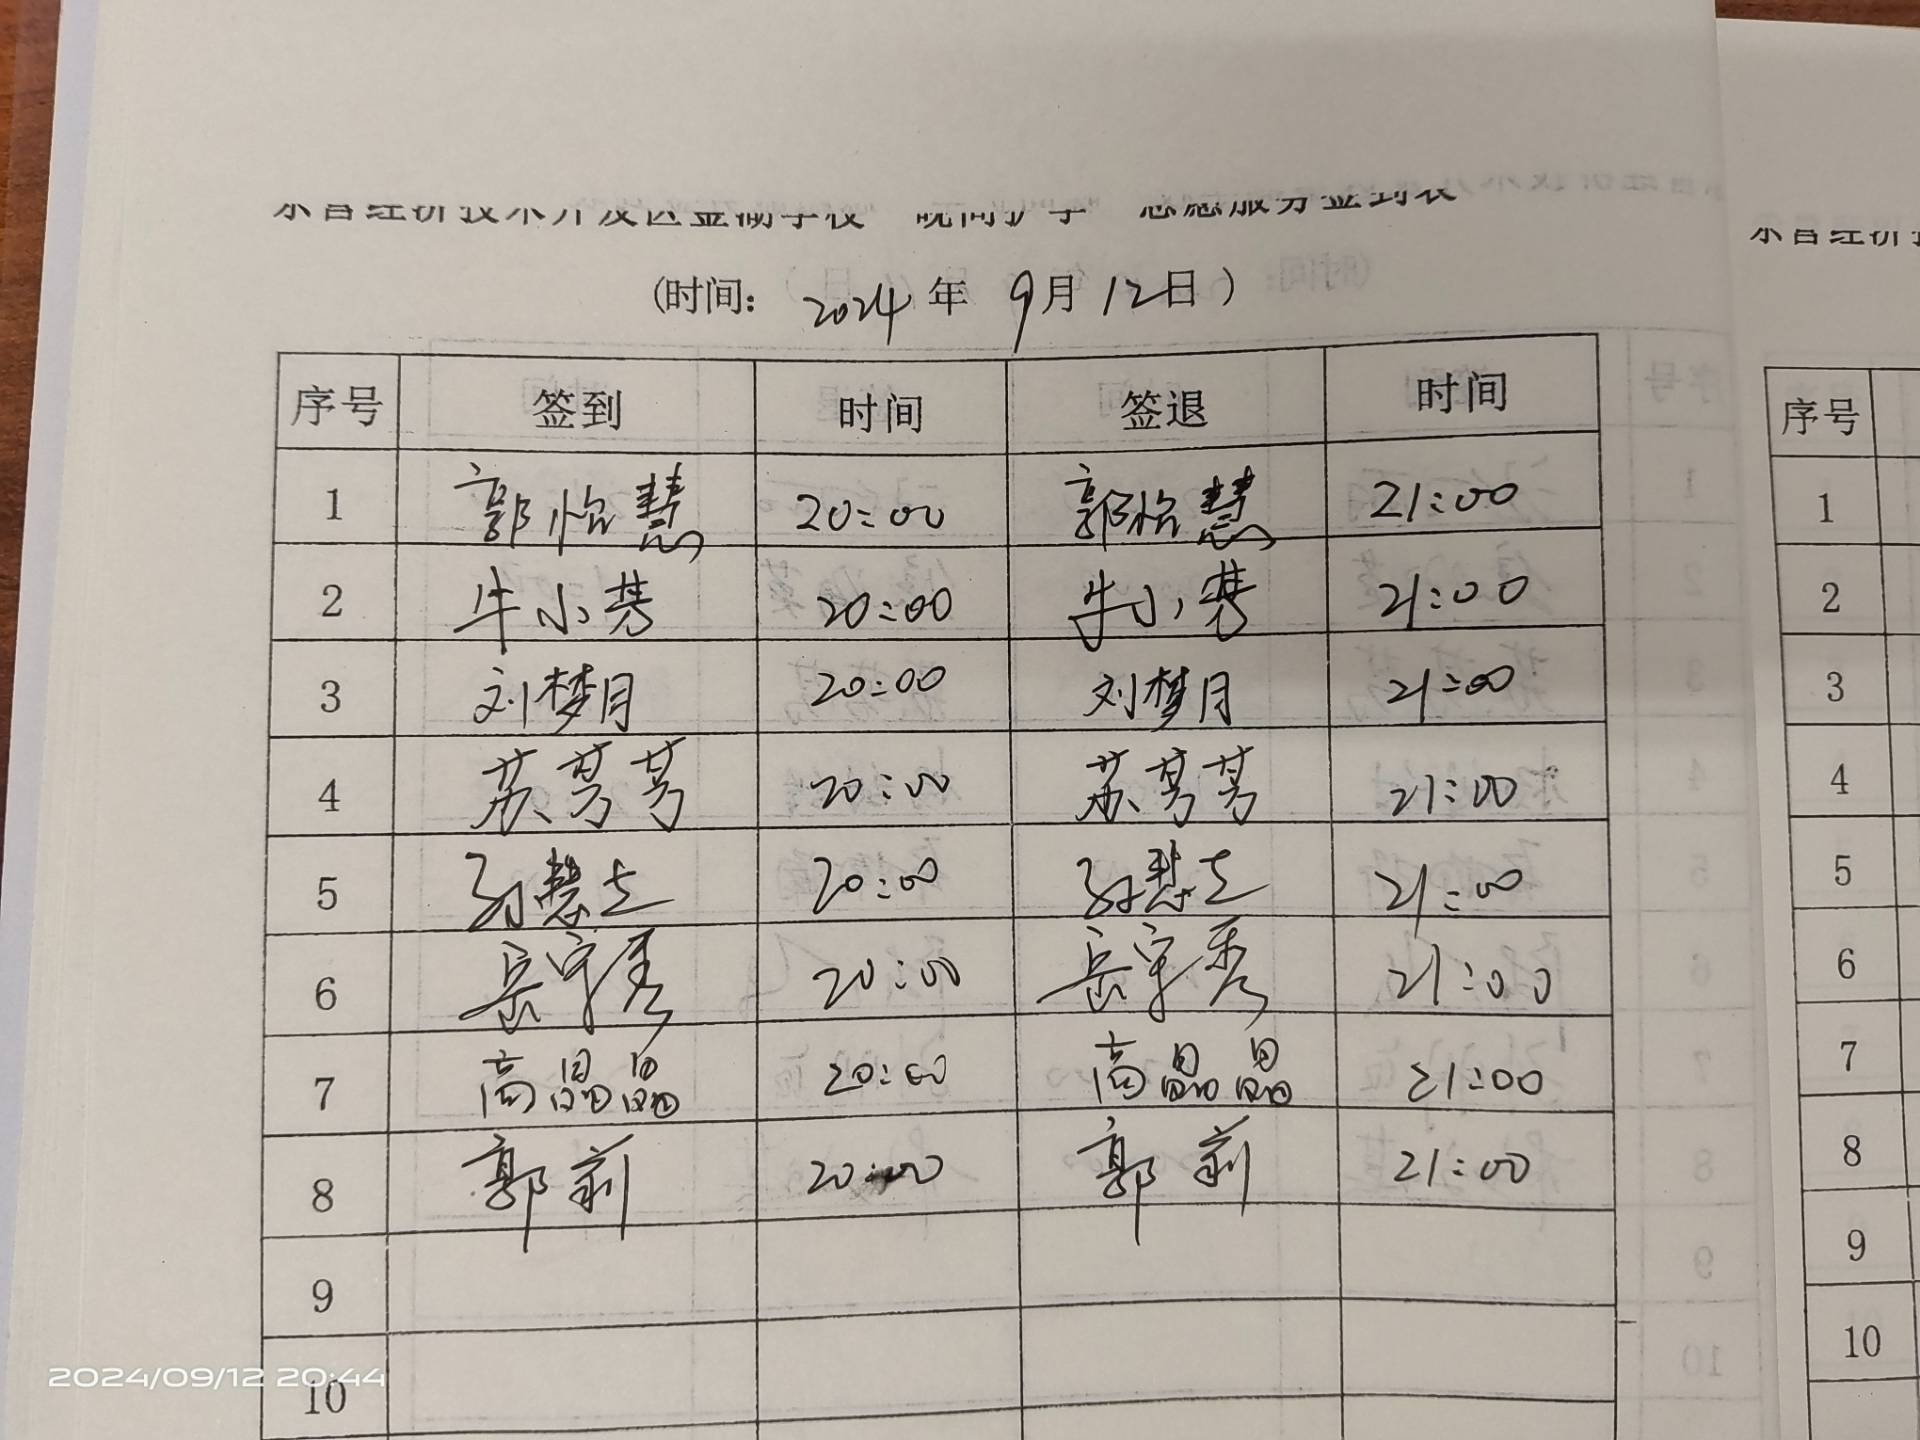 东营经济技术开发区金湖学校“晚间护学”志愿服务签到表
(时间: 2024 年 9月 12日 )
序号 签到 时间 签退 时间
1 郭怡慧 20:00 郭怡慧 21:00
2 牛小芳 20:00 牛小芳 21:00
3 刘梦月 20:00 刘梦月 21:00
4 苏芳芳 20:00 苏芳芳 21:00
5 20:00 21:00
6 岳宇秀 20:00 岳宇秀 21:00
7 高晶晶 20:00 高晶晶 21:00
8 郭莉 20:00 郭莉 21:00
9
10
东营经济
序号
1
2
3
4
5
6
7
8
9
10
2024/09/12 20:44